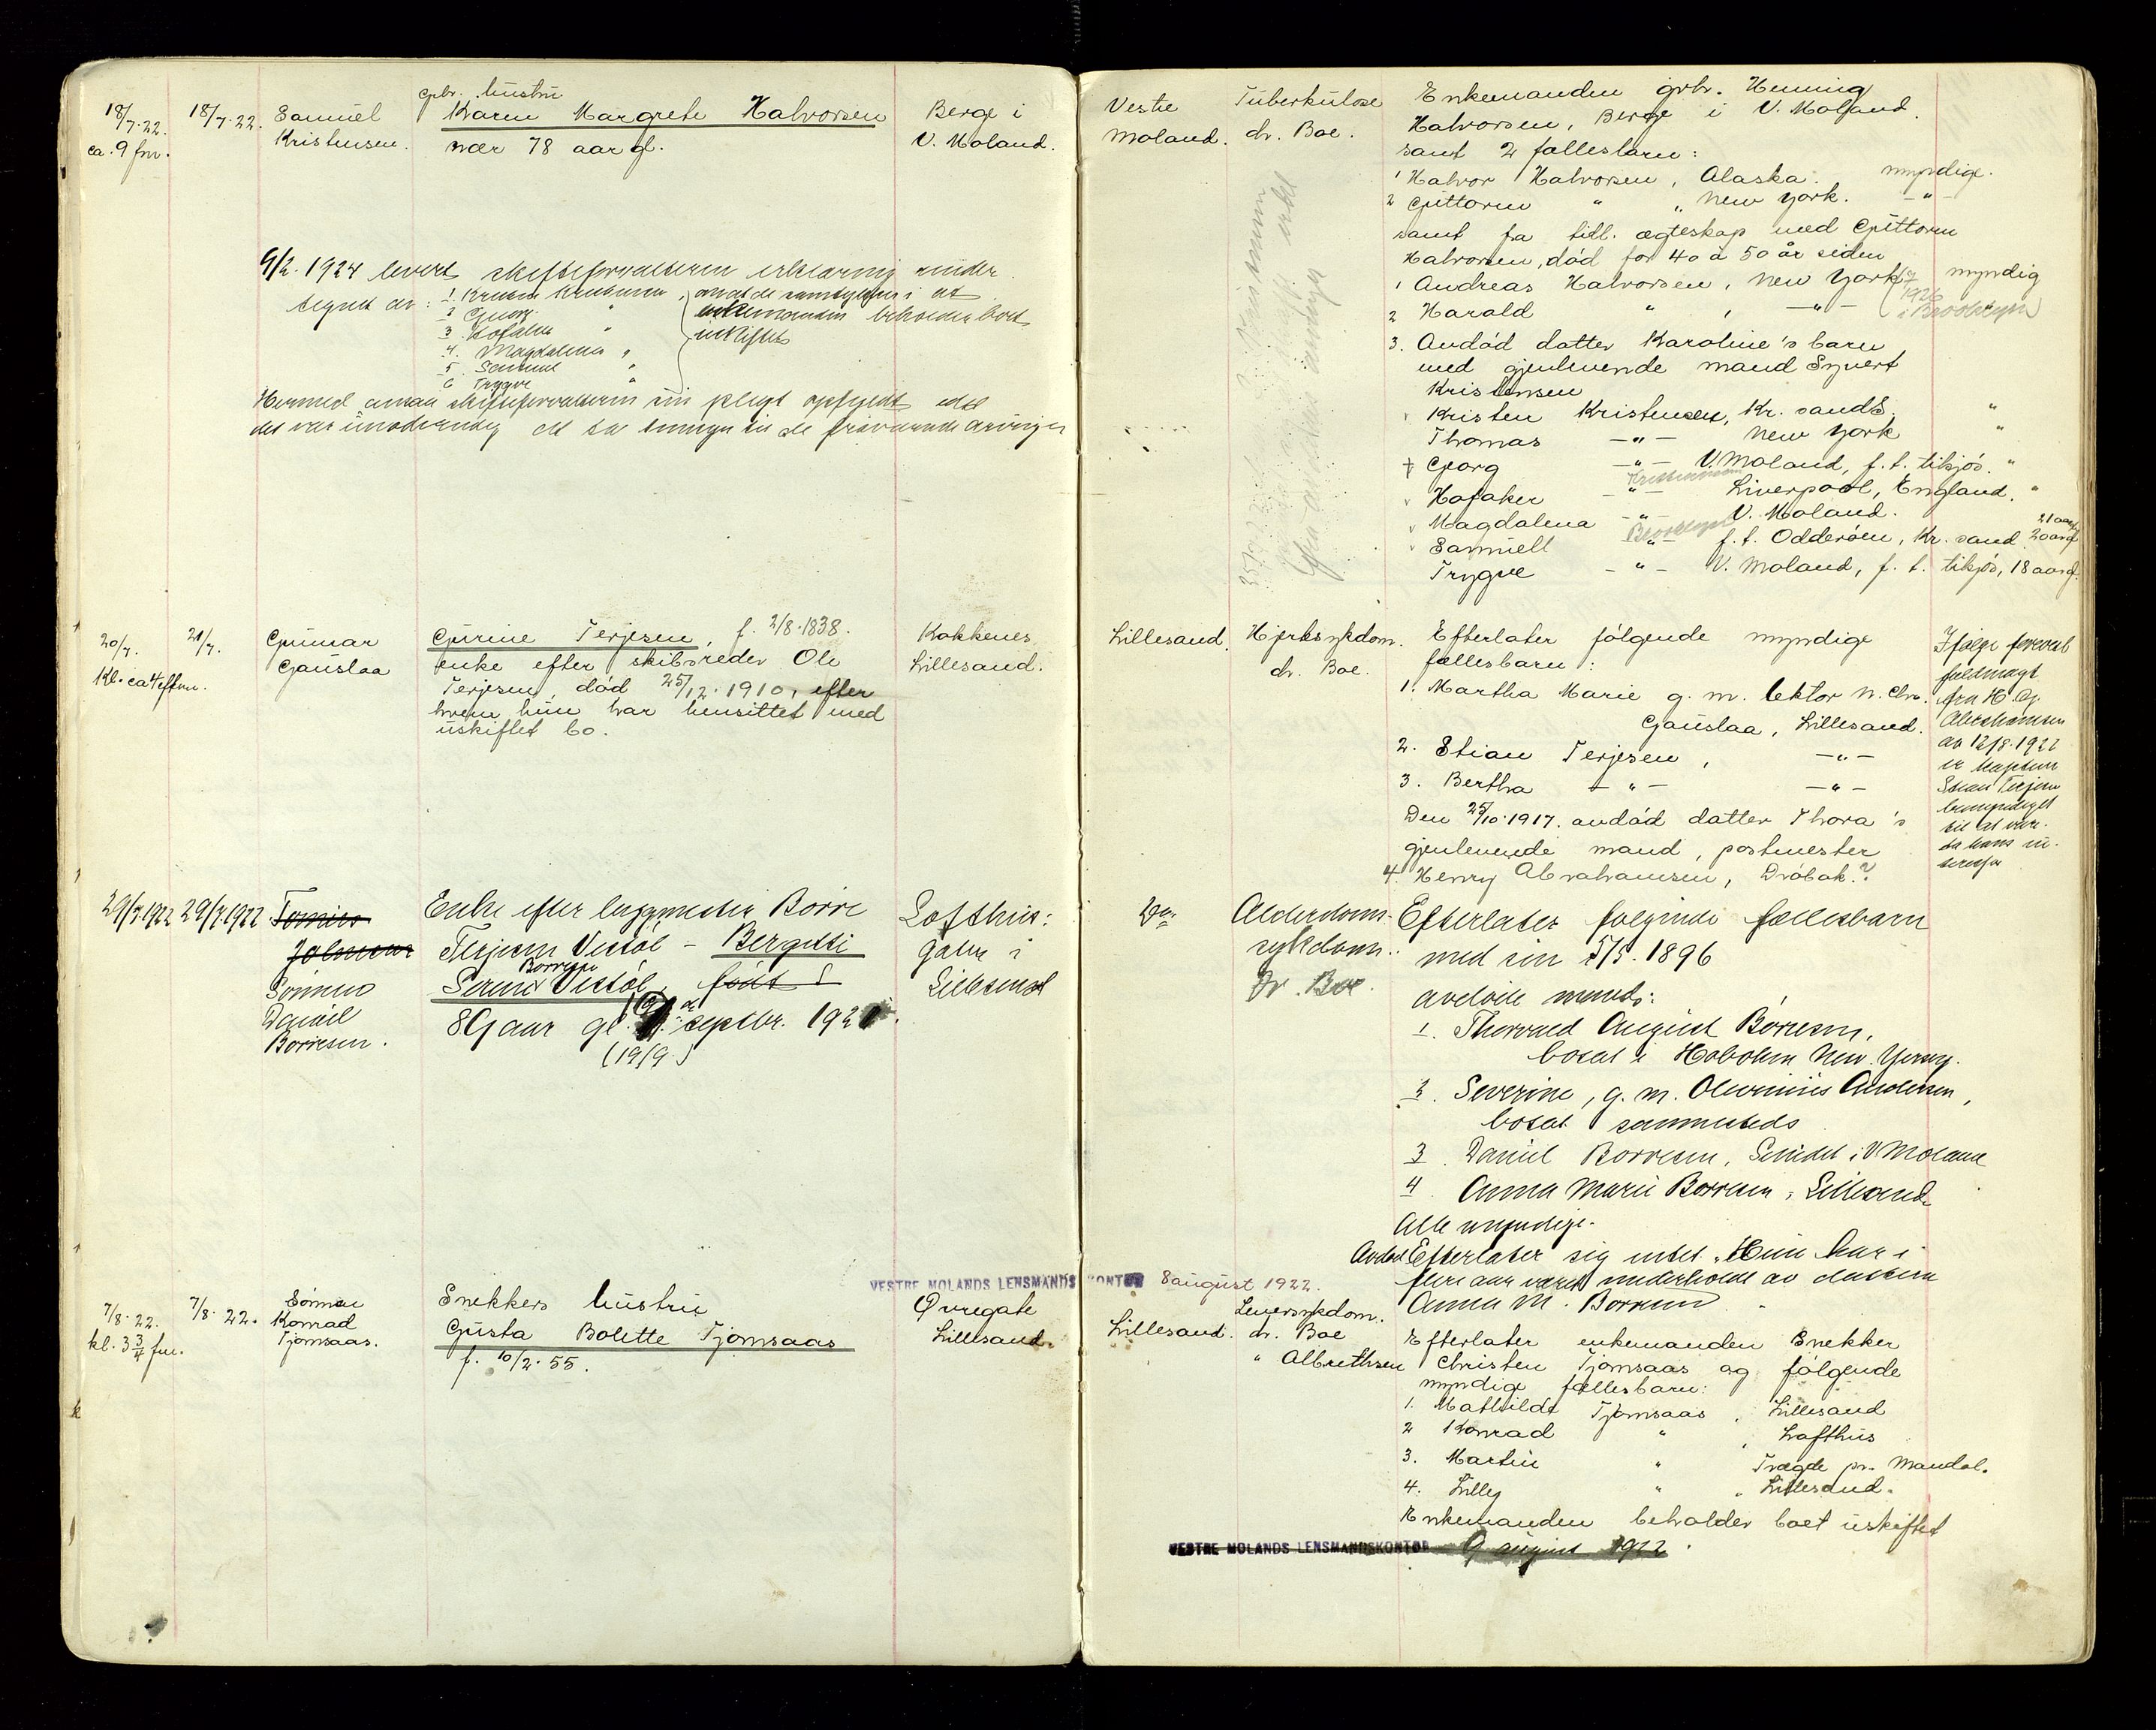 18/7.22. 18/7.22. Samuel gbr. hustru Berge i
ca. 9 fm. Kristensen. Karen Margrete Halvorsen V. Moland.
nær 78 aar gl.
Vestre Tuberkulose Enkemanden grbr. Henning
Moland. dr. Boe. Halvorsen, Berge i V. Moland.
samt 2 fællesbarn:
1 Halvor Halvorsen, Alaska. myndige.
2 Guttorm " , New York. - " -
samt fra tidl. ægteskap med Guttorm
Halvorsen, død for 40 à 50 år siden
1 Andreas Halvorsen, New York myndig
2 Harald " , - " - i Brooklyn
3. Avdød datter Karoline's barn
med gjenlevende mand Syvert
Kristensen
Kristen Kristensen, Kr. sand S. "
Thomas - " - New York "
Georg - " - V. Moland, f.t. tilsjøs. "
Hafaker - " - Liverpool, England. "
Magdalena - " - V. Moland. 21 aar
Samuell Brooklyn " - f.t. Odderøen, Kr. sand 20 aar gl
Trygve - " - V. Moland, f.t. tilsjøs, 18 aar gl.
9/2. 1924 levert skifteforvalteren erklæring under
tegnet av: 1. Kristen Kristensen
2 Georg "
3 Hofaker "
4. Magdalena "
5. Samuel "
6 Trygve "
enkemanden beholder boet
uskiftet
20/7. 21/7. Gunnar Gurine Terjesen, f. 2/8.1838. Kokkenes
Kl. ca 4 eftm. Gauslaa enke efter skibsreder Ole Lillesand.
Terjesen, død 25/12.1910, efter
hvem hun har hensittet med
uskiftet bo.
Lillesand. Hjertesykdom. Efterlater følgende myndige
dr. Boe. fællesbarn:
1. Martha Marie g. m. lektor N. Chr.
Gauslaa, Lillesand.
2. Stian Terjesen, - " -
3. Bertha - " - - " -
Den 25/10.1917. avdød datter Thora's
gjenlevende mand, postmester
4. Henry Abrahamsen, Drøbak.?
Ifølge forevist
fuldmagt
fra H. Og.
Abrahamsen
av 12/8.1922
er kaptein
Stian Terjesen
bemyndiget
til at vare-
ta hans in-
teresser
29/7.1922 29/7.1922. Enke efter byggmester Børre Lofthus:
Terjesen Vestøl - Bergitte gaten i
Sønnen Børresen
Daniel Vestøl, født Lillesand
Børresen. 89 aar gl. septbr. 192
(19/9.)
Do Alderdoms- Efterlater følgende fællesbarn
sykdom. med sin 5/5. 1896
Dr. Boe. avdøde mand:
1. Thorvald August Børresen,
bosat i Hoboken New Yersey.
2. Severine, g. m. Oluvinius Andersen,
bosat sammesteds
3. Daniel Børresen, V Moland
4 Anna Marie Børresen, Lillesand
Alle myndige.
Avdøde Efterlater sig intet. Hun har i
flere aar været underholdt av datteren
Anna M. Børresen
VESTRE MOLANDS LENSMANDSKONTOR 8 august 1922.
7/8.22. 7/8.22. Sønnen Snekkers hustru Øvregate
kl. 3 3/4 fm. Konrad Gusta Bolette Tjomsaas Lillesand.
Tjomsaas. f. 10/2.55.
Lillesand. Leversykdom. Efterlater enkemanden Snekker
dr. Boe Christen Tjomsaas og følgende
" Albrethsen myndige fællesbarn:
1. Mathilde Tjomsaas, Lillesand
2 Konrad " , Lofthus
3. Martin " Trægde pr. Mandal.
4. Lilly " , Lillesand.
Enkemanden beholder boet uskiftet
VESTRE MOLANDS LENSMANDSKONTOR 9 august 1922.